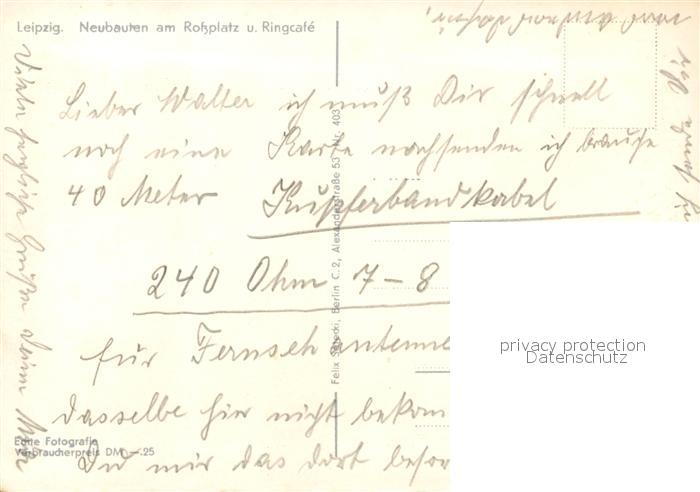 Leipzig. Neubauten am Roßplatz u. Ringcafé
Lieber Walter ich muß Dir schnell
noch eine Karte nachsenden ich brauche
40 Meter Kupferbandkabel
240 Ohm 7-8
für Fernsehantenne
dasselbe hier nicht bekom
Du mir das dort besor
Echte Fotografie
Verbraucherpreis DM -.25
Berlin C. 2, Alexanderstraße 53
privacy protection
Datenschutz
Viele herzliche Grüße Deine